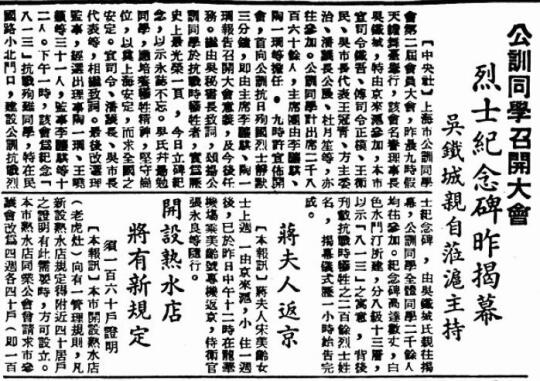 公訓同學召開大會
烈士紀念碑昨揭幕
吳鐵城親自蒞滬主持
【中央社】上海市公訓同學
會第二屆會員大會,昨晨九時假
天蟾舞臺舉行,該會名譽理事長
吳鐵城,特由京來滬參加,本市
宣司令鐵吾、傅司令正模、王衛
民、吳市長代表王冠青、方主委
治、潘議長公展、杜月笙等,亦
往參加。公訓同學計出席二千八
百六十餘人,主席團由李驪騏、
陶一珊等擔任。九時許宣佈開
會,首向公訓抗日殉國烈士靜默
三分鐘,即由主席李驪騏、陶一
珊報告召開大會意義,及今後任
務。繼由吳秘書長致詞,頌揚公
訓同學於抗戰時犧牲者,實爲歷
史上最光榮一頁,今日立碑紀
念,以示永誌不忘。吳氏并勉勵
同學,應培養犧牲精神,堅守崗
位,以奠上海安定,而求全國之
安定。宣司令、潘議長、吳市長
代表等,相繼致詞。最後改選理
監事,經選出理事陶一珊、王曉
籟等三十一人,監事李驪騏等十
二人。下午一時,該會爲紀念「
八一三」抗戰殉難同學,特在民
國路小北門口,建設公訓抗戰烈
士紀念碑,由吳鐵城氏親往揭
幕,公訓同學全體同學二千餘人
均在參加。紀念碑高達數丈,白
色水門汀所建,分八級十三層,
以示「八一三」之寓意,背後
刊數抗戰時犧牲之二百餘烈士姓
名,揭幕儀式歷一小時始告完
蔣夫人返京
【本報訊】蔣夫人宋美齡女
士上週一由京來滬,小住一週
後,已於昨日中午十二時在龍華
機場乘美齡號專機返京,侍衛官
張永良等隨行。
開設熟水店
將有新規定
須一百六十戶證明
【本報訊】本市開設熟水店
(老虎灶)向有一管理規則,凡
新設熟水店規定得附近四十居戶
之證明有此需要時,方可設立。
本市熟水店同業公會曾請求市參
議會改爲四週各四十戶(即一百